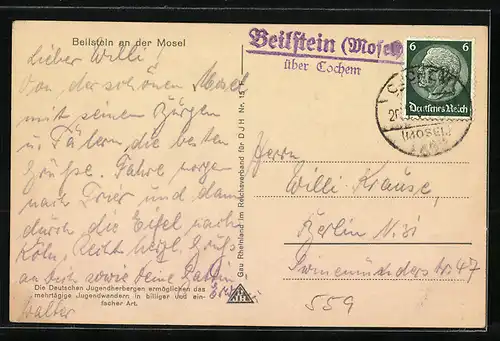 Beilstein an der Mosel
Lieber Willi!
Von der schönen Mosel
mit seinen Burgen
u. Tälern, die besten
Grüße. Fahre morgen
nach Trier und dann
durch die Eifel nach
Köln. Recht herzl. Grüße
an Dich sowie Deine
Die Deutschen Jugendherbergen ermöglichen das
mehrtägige Jugendwandern in billiger und ein-
facher Art.
Walter
Gau Rheinland im Reichsverband für DJH Nr. 15
Beilstein (Mosel)
über Cochem
6 6
Deutsches Reich
COCHEM
(MOSEL)
Herrn
Willi Krause,
Berlin N 31
Swinemünderstr 47
559